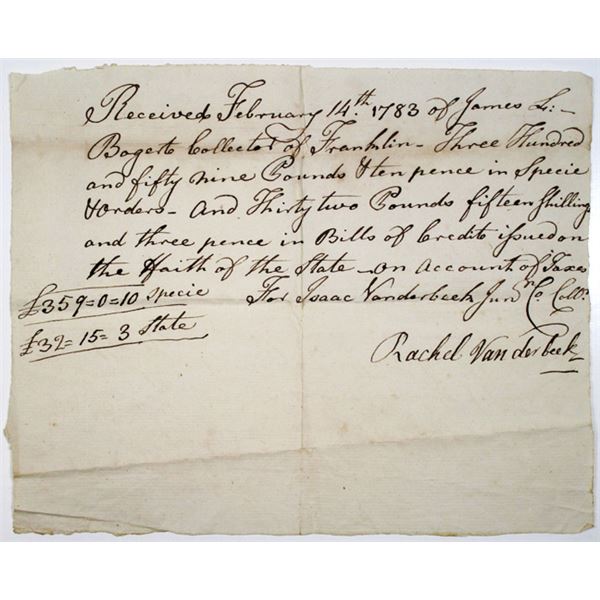 Received February 14.th 1783 of James L:-
Bogert Collector of Franklin - Three Hundred
and fifty nine Pounds & ten pence in Specie
& orders - And Thirty two Pounds fifteen Shillings
and three pence in Bills of Credit issued on
the Faith of the State - on Account of Taxes
£359=0=10 Specie
For Isaac Vanderbeek Junr. Co. Collr.
£32=15=3 State
Rachel Vanderbeek